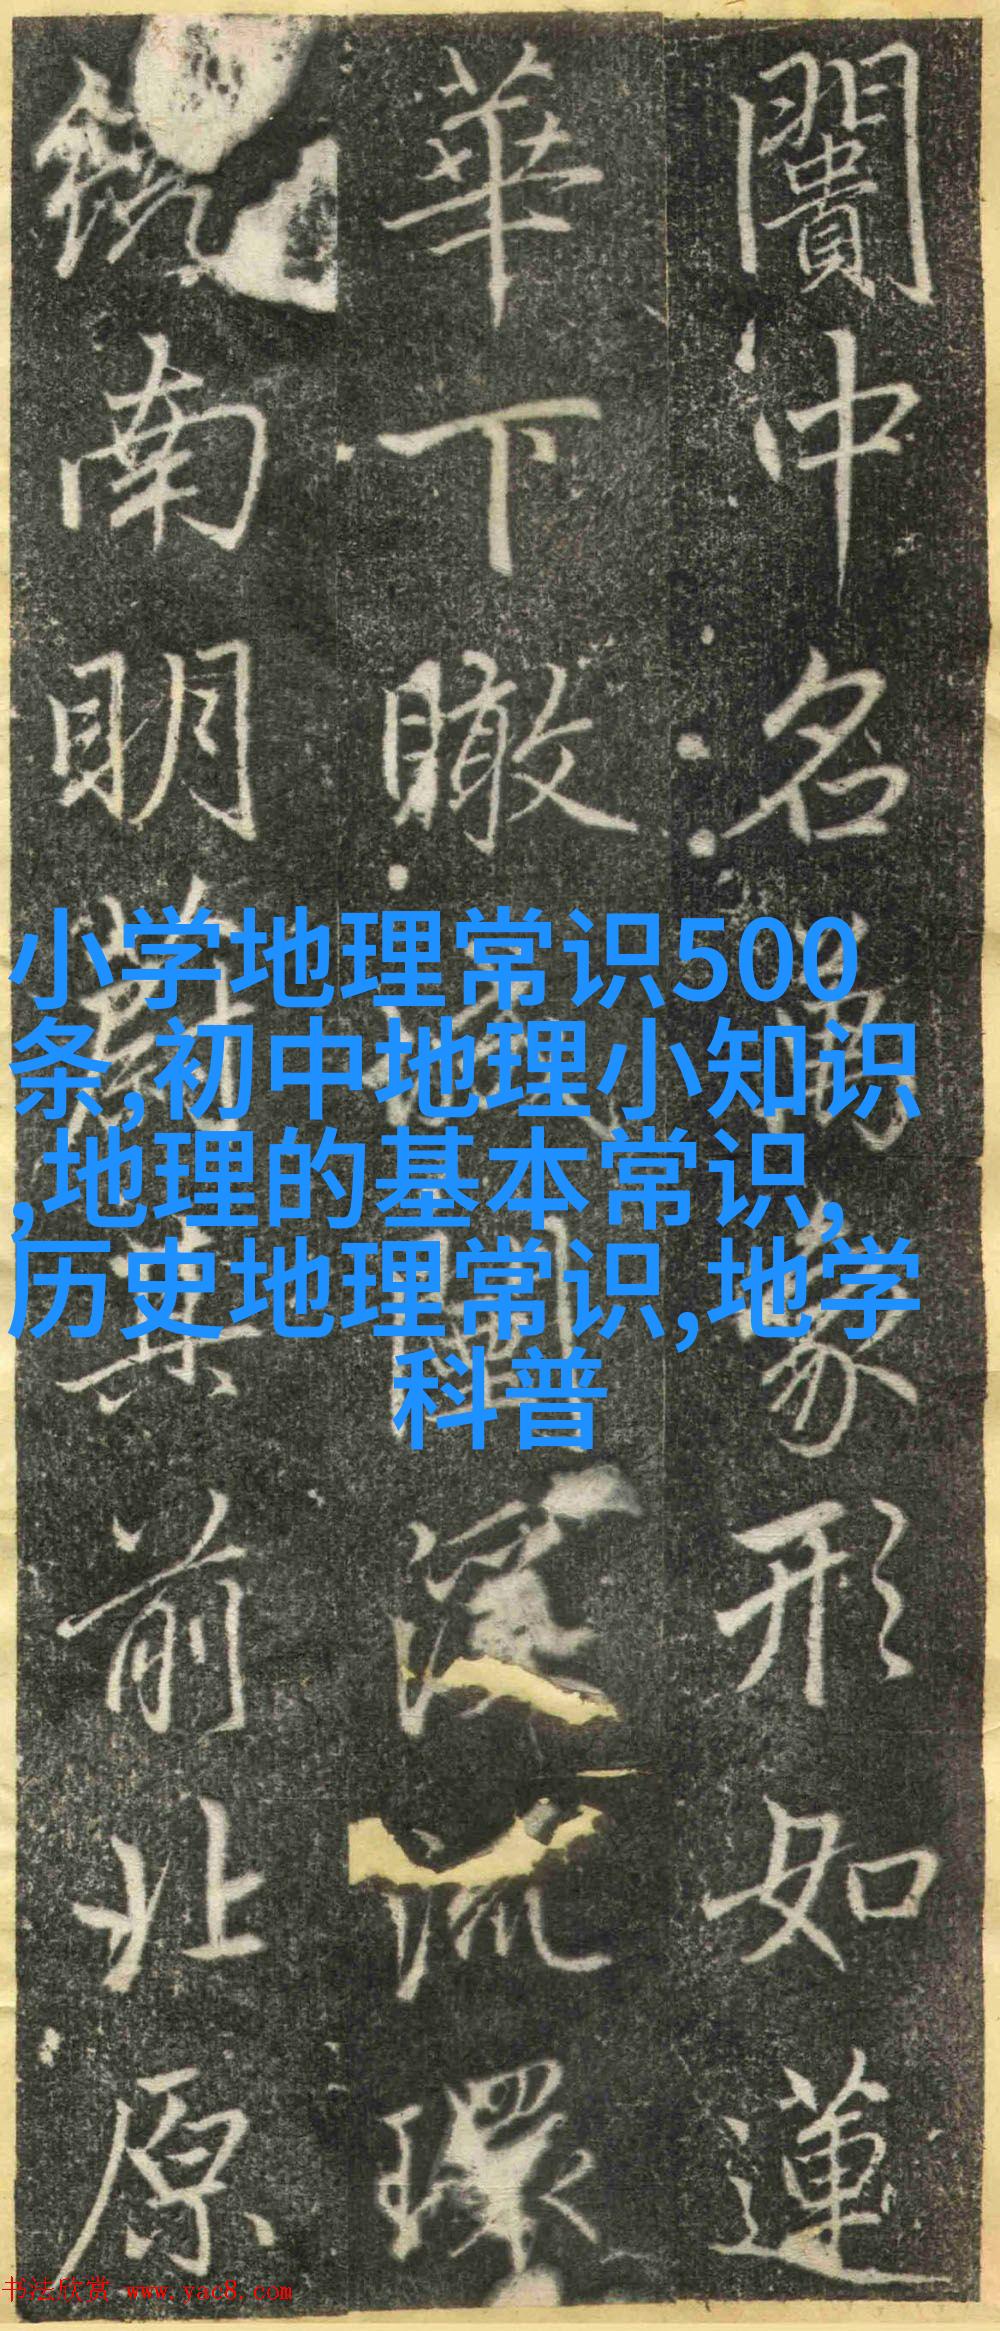 闠中名萬象形如蓮
華下瞰流環
南明其前北原
小学地理常识500
条,初中地理小知识
,地理的基本常识,
历史地理常识,地学
科普
书法欣赏 www.yac8.com